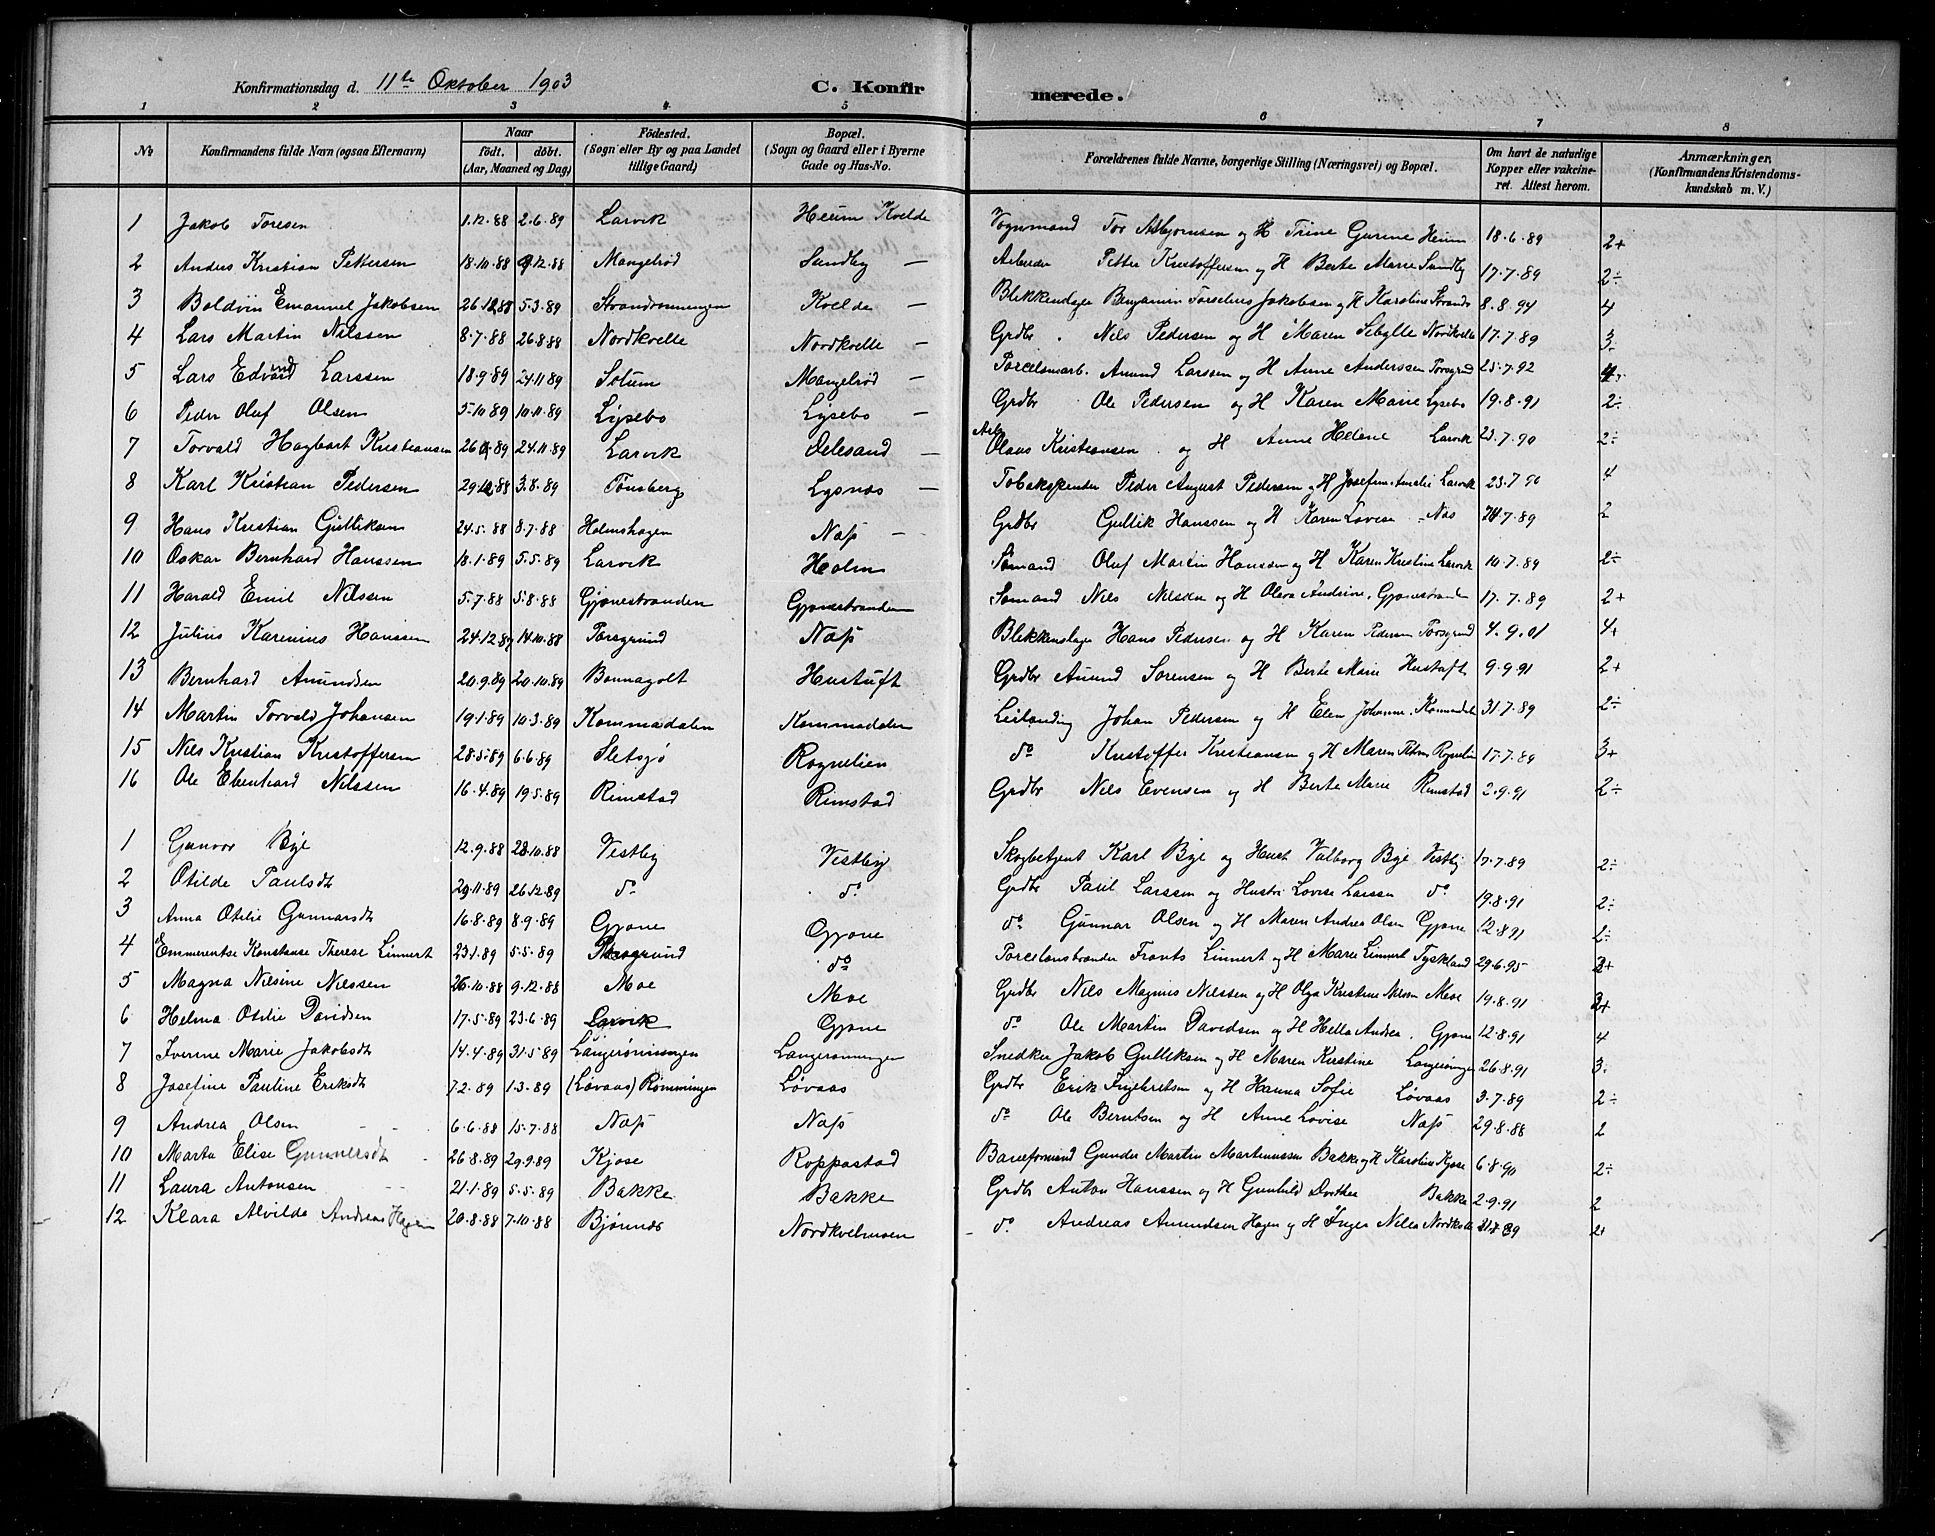 Konfirmationsdag d. 11te Oktober 1903 C. Konfirmerede.
1 2 3 4 5 6 7 8
No Konfirmandens fulde Navn (ogsaa Efternavn) Naar födt. döbt. (Aar, Maaned og Dag) Födested. (Sogn eller By og paa Landet tillige Gaard) Bopæl. (Sogn og Gaard eller i Byerne Gade og Hus-No. Forældrenes fulde Navne, borgerlige Stilling (Næringsvei) og Bopæl. Om havt de naturlige Kopper eller vakcineret. Attest herom. Anmærkninger, (Konfirmandens Kristendomskundskab m. V.)
1 Jakob Toresen 1.12.88 2.6.89 Larvik Heum Kvelde Vognmand Tor Asbjornsen og H Trine Gurine Heum 18.6.89 2+
2 Anders Kristian Pettersen 18.10.88 9.12.88 Mangelrød Sundby — Arbeider Petter Kristoffersen og H Berte Marie Sundby 17.7.89 2÷
3 Boldvin Emanuel Jakobsen 26.12.88 5.3.89 Strandronningen Kvelde — Blekkenslager Benjamin Jakobsen og H Karoline Strands 8.8.94 4
4 Lars Martin Nilssen 8.7.88 26.8.88 Nordkvelle Nordkvelle — Grdbr. Nils Pedersen og H Maren Sibylle Nordkvelle 17.7.89 3
5 Lars Edvard Larssen 18.9.89 24.11.89 Solum Mangelrød — Porcelensarb. Amund Larssen og H Anne Anderssen Porsgrund 25.7.92 4
6 Peder Oluf Olsen 5.10.89 10.11.89 Lysebo Lysebo — Grdbr Ole Pedersen og H Karen Marie Lysebo 19.8.91 2÷
7 Torvald Hagbart Kristiansen 24.11.89 Larvik Odelsand — Arb Olaus Kristiansen og H Anne Helene Larvik 23.7.90 2÷
8 Karl Kristian Pedersen 29.12.88 3.8.89 Tönsberg Lysnes — Tobakspinder Peder August Pedersen og H Josefine Amalie Larvik 23.7.90 4
9 Hans Kristian Gulliksen 24.5.88 8.7.88 Holmshagen Næss — Grdbr Gullik Hanssen og H Karen Lovise Næs 7.89 2
10 Oskar Bernhard Hanssen 18.1.89 5.5.89 Larvik Holm Sømand Oluf Martin Hanssen og H Karen Kristine Larvik 10.7.89 2÷
11 Harald Emil Nilssen 5.7.88 5.8.88 Gjønestranden Gjonestranden Sømand Nils Nilssen og H Olava Andrine, Gjonestranden 17.7.89 2+
12 Julius Karenius Hanssen 24.12.87 14.10.88 Porsgrund Næss Blekkenslager Hans Pedersen og H Karen Pedersen Porsgrund 4.9.01 4+
13 Bernhard Amundsen 20.9.89 20.10.89 Bonnagolt Hustuft Grdbr Amund Sorensen og H Berte Marie Hustuft 9.9.91 2+
14 Martin Torvald Johansen 19.1.89 10.3.89 Kommadalen Kommadalen Leilænding Johan Pedersen og H Elen Johanne, Kommadalen 31.7.89 2÷
15 Nils Kristian Kristoffersen 28.5.89 6.6.89 Sletsjø Rognelien do Kristoffer Kristiansen og H Maren Rognelien 17.7.89 3+
16 Ole Ebenhard Nilssen 16.4.89 19.5.89 Rimstad Rimstad Grdbr Nils Evensen og H Berte Marie Rimstad 2.9.91 2÷
1 Gunvor Bye 12.9.88 28.10.88 Vestby Vestby Skogbetjent Karl Bye og Hust. Valborg Bye Vestby 17.7.89 2÷
2 Otilde Paulsdt 29.11.89 26.12.89 do do Grdbr Paul Larssen og Hustru Lovise Larssen do 19.8.91 2÷
3 Anna Otilie Gunnarsdt 16.8.89 8.9.89 Gjone Gjone do Gunnar Olsen og H Maren Andrea Olsen Gjone 12.8.91 2÷
4 Emmerentse Konstanse Therese Linnert 23.1.89 5.5.89 Porsgrund do Porcelænsbrænder Frants Linnert og H Marie Linnert Tyskland 29.6.95 2+
5 Magna Nilsine Nilssen 26.10.88 9.12.88 Moe Moe Grdbr Nils Magnus Nilssen og H Olga Kristine Nilssen Moe 19.8.91 3+
6 Helma Otilie Davidsen 17.5.89 23.6.89 Larvik Gjone do Ole Martin Davidsen og H Hella Andrea, Gjone 12.8.91 4
7 Iverine Marie Jakobsdt 14.4.89 31.5.89 Langerønningen Langerønningen Snedker Jakob Gulliksen og H Maren Kirstine Langerøningen 26.8.91 3
8 Josefine Pauline Eriksdt 7.2.89 1.3.89 (Løvaas) Rømningen Løvaas Grdbr Erik Ingebretsen og H Hanna Sofie Løvaas 3.7.89 2÷
9 Andrea Olsen 6.6.88 15.7.88 Næss Næss do Ole Berntsen og H Anne Lovise Næss 29.8.88 2
10 Marta Elise Gunnersdt 26.8.89 29.9.89 Kjose Roppestad Baneformand Gunder Martin Martinussen Bakke og H Karoline Kjose 6.8.90 2÷
11 Laura Antonsen 21.1.89 5.5.89 Bakke Bakke Grdbr Anton Hanssen og H Gunhild Dorthea Bakke 2.9.91 2
12 Klara Alvilde Andreas Hagen 20.8.88 7.10.88 Bjønnes Nordkvelhusen do Andreas Amundsen Hagen og H Inger Nilla Nordkvelle 2+